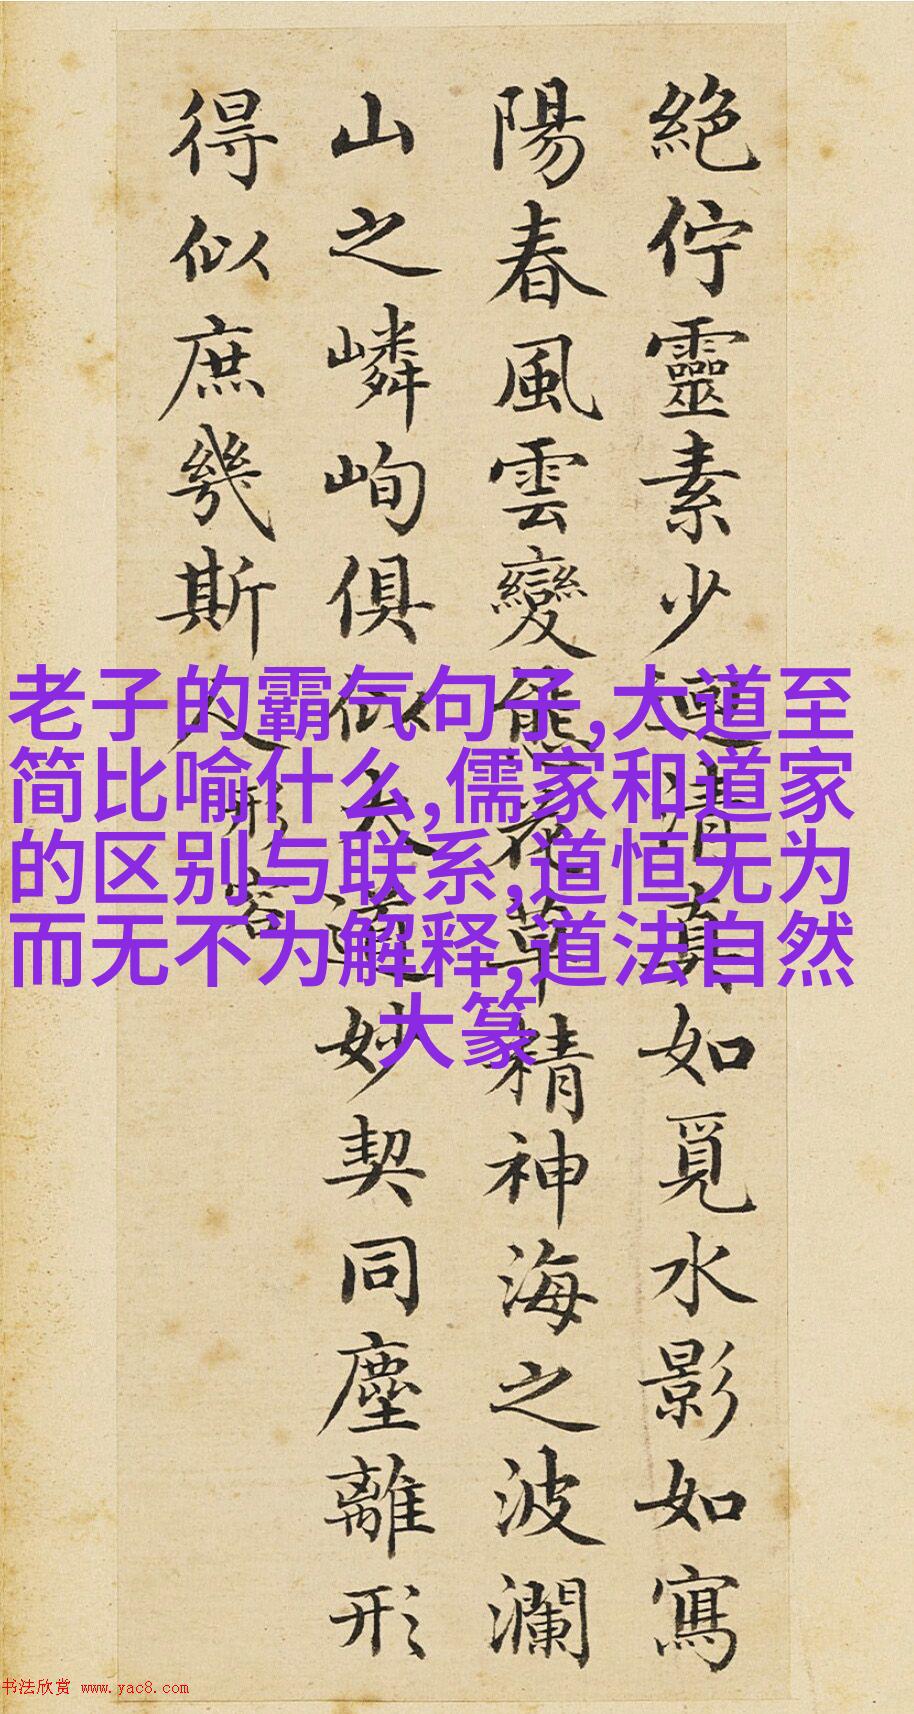 絕佇靈素少迴清真如覓水影如寫
陽春風雲變態草精神海之波瀾
山之嶙峋俱似大道妙契同塵離形
得似庶幾斯人形容
老子的霸气句子,大道至
简比喻什么,儒家和道家
的区别与联系,道恒无为
而无不为解释,道法自然
大篆
书法欣赏 www.yac8.com